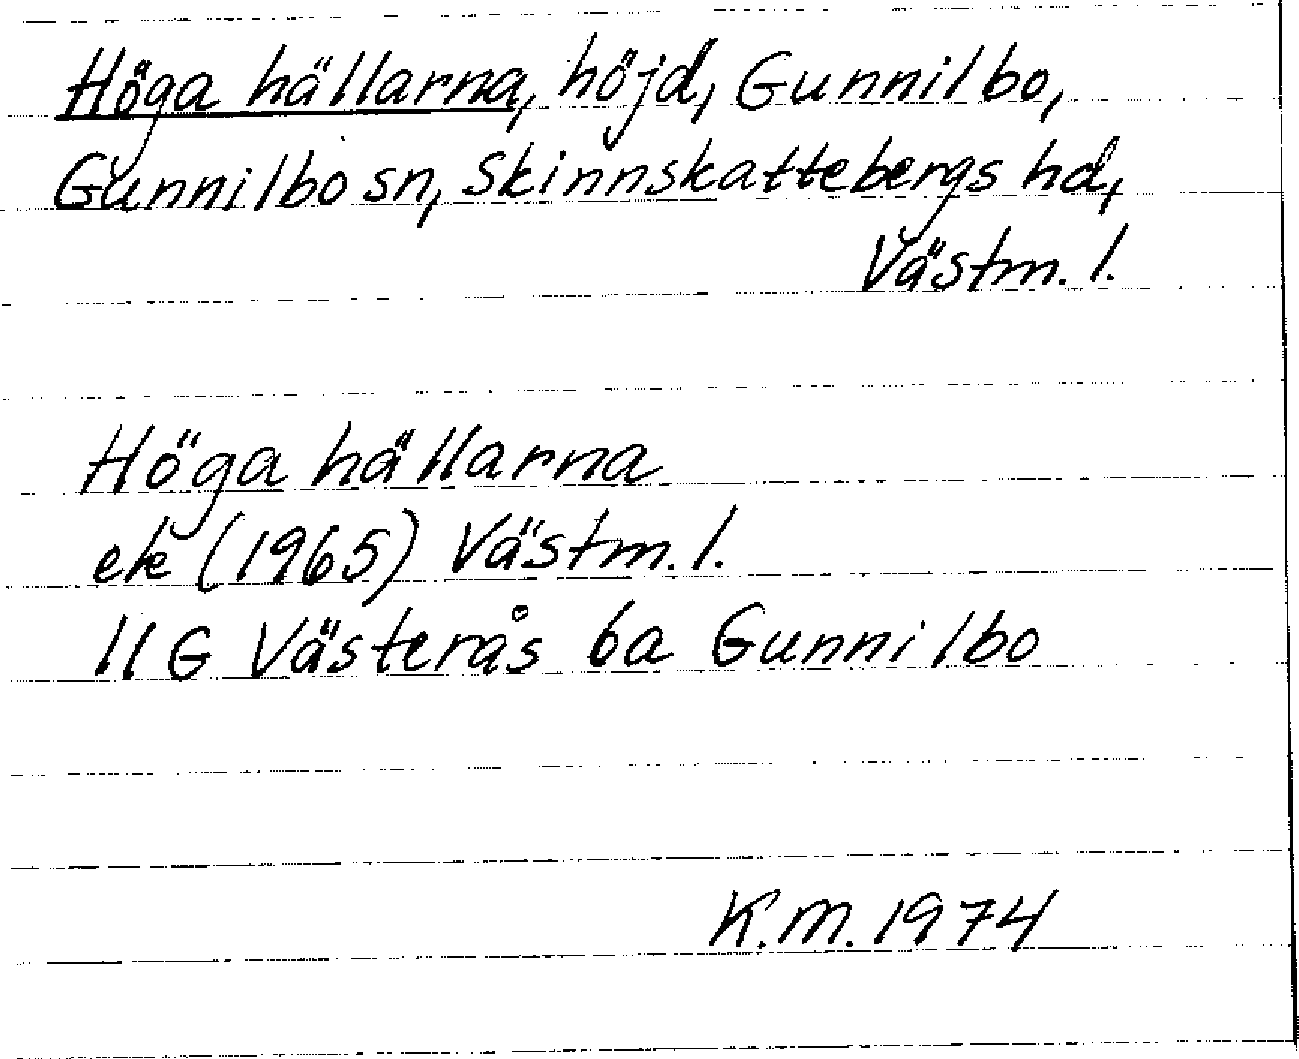 Höga hällarna, höjd, Gunnilbo,
Gunnilbo sn, Skinnskattebergs hd,
Västm. l.
Höga hällarna
ek (1965) Västm. l.
11 G Västerås 6a Gunnilbo
K.M. 1974